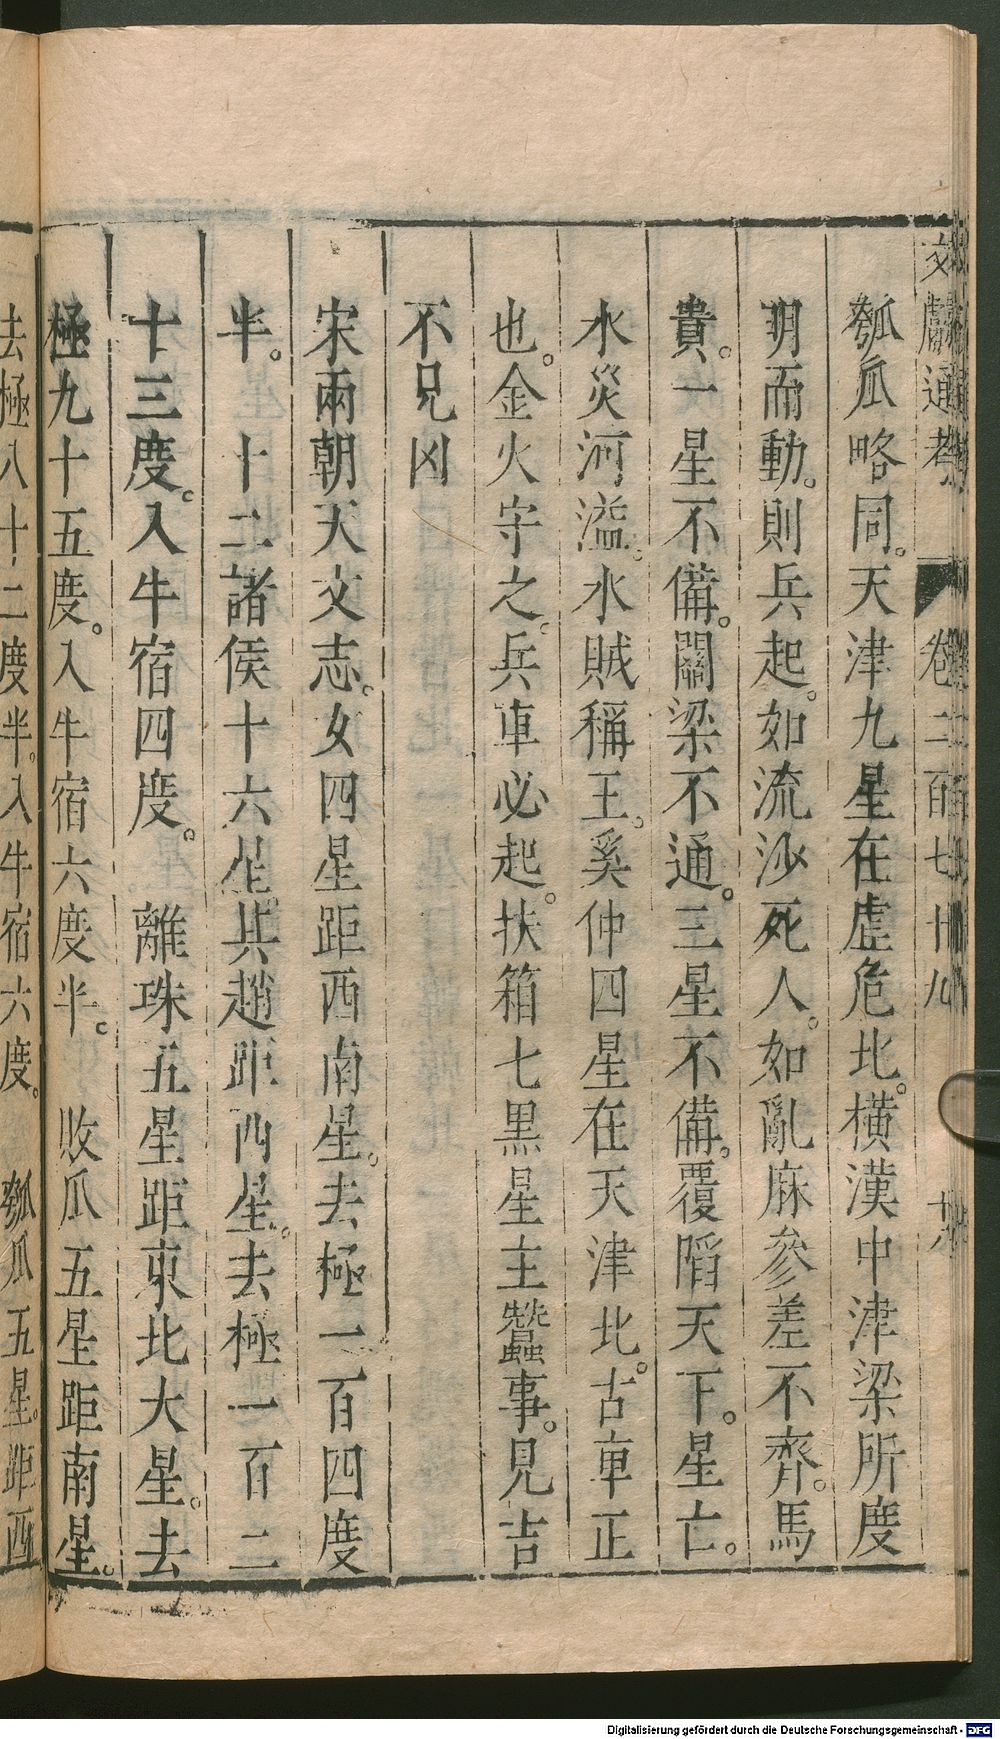 文獻通考 卷二百七十九 十六
瓠瓜略同。天津九星在虛危北。橫漢中津梁所度
明而動。則兵起。如流沙死人。如亂麻參差不齊。馬
貴。一星不備。關梁不通。三星不備。覆陷天下。星亡。
水災河溢。水賊稱王。奚仲四星在天津北。古車正
也。金火守之。兵車必起。扶箱七黑星主蠶事。見吉
不見凶
宋兩朝天文志。女四星距西南星。去極一百四度
半。 十二諸侯十六星。其趙距西星。去極一百二
十三度。入牛宿四度。 離珠五星距東北大星。去
極九十五度。入牛宿六度半。 敗瓜五星距南星。
去極八十二度半。入牛宿六度。 瓠瓜五星。距西
Digitalisierung gefördert durch die Deutsche Forschungsgemeinschaft - DFG